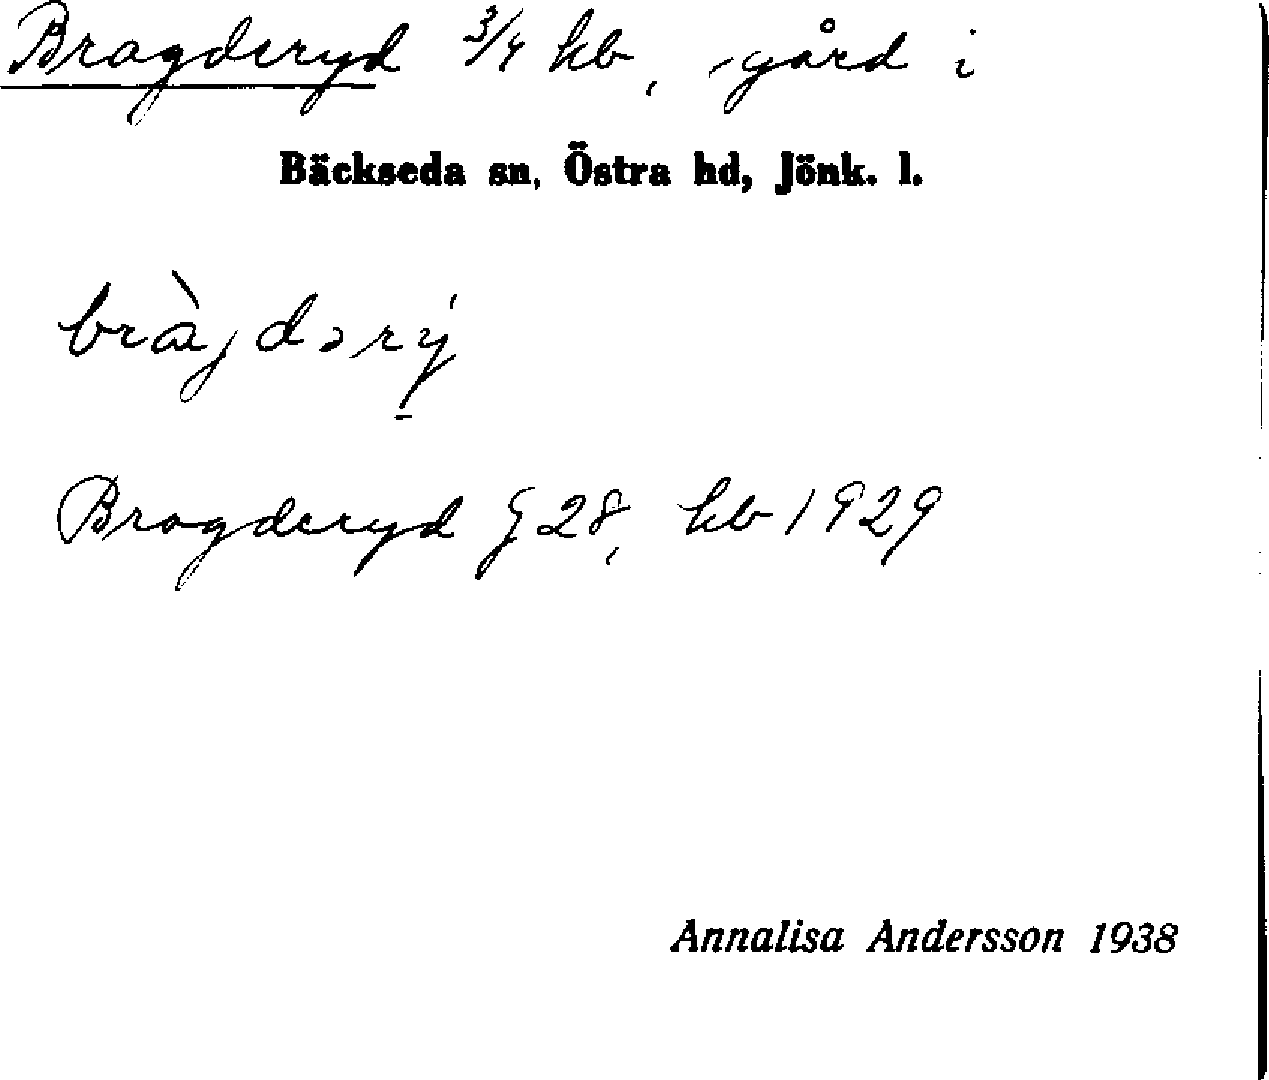 Bragderyd 3/4 kb, gård i
Bäckseda sn, Östra hd, Jönk. l.
Bragderyd G 28, kb 1929
Annalisa Andersson 1938